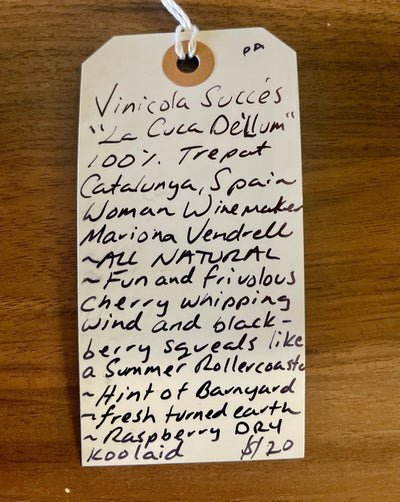 Vinicola Succés
"La Cuca De'Llum"
100% Trepat
Catalunya, Spain
Woman Winemaker
Mariona Vendrell
~ALL NATURAL
~Fun and frivolous
Cherry whipping
wind and black-
berry squeals like
a Summer Rollercoaster
~Hint of Barnyard
~fresh turned earth
~Raspberry DRY
Koolaid $/20